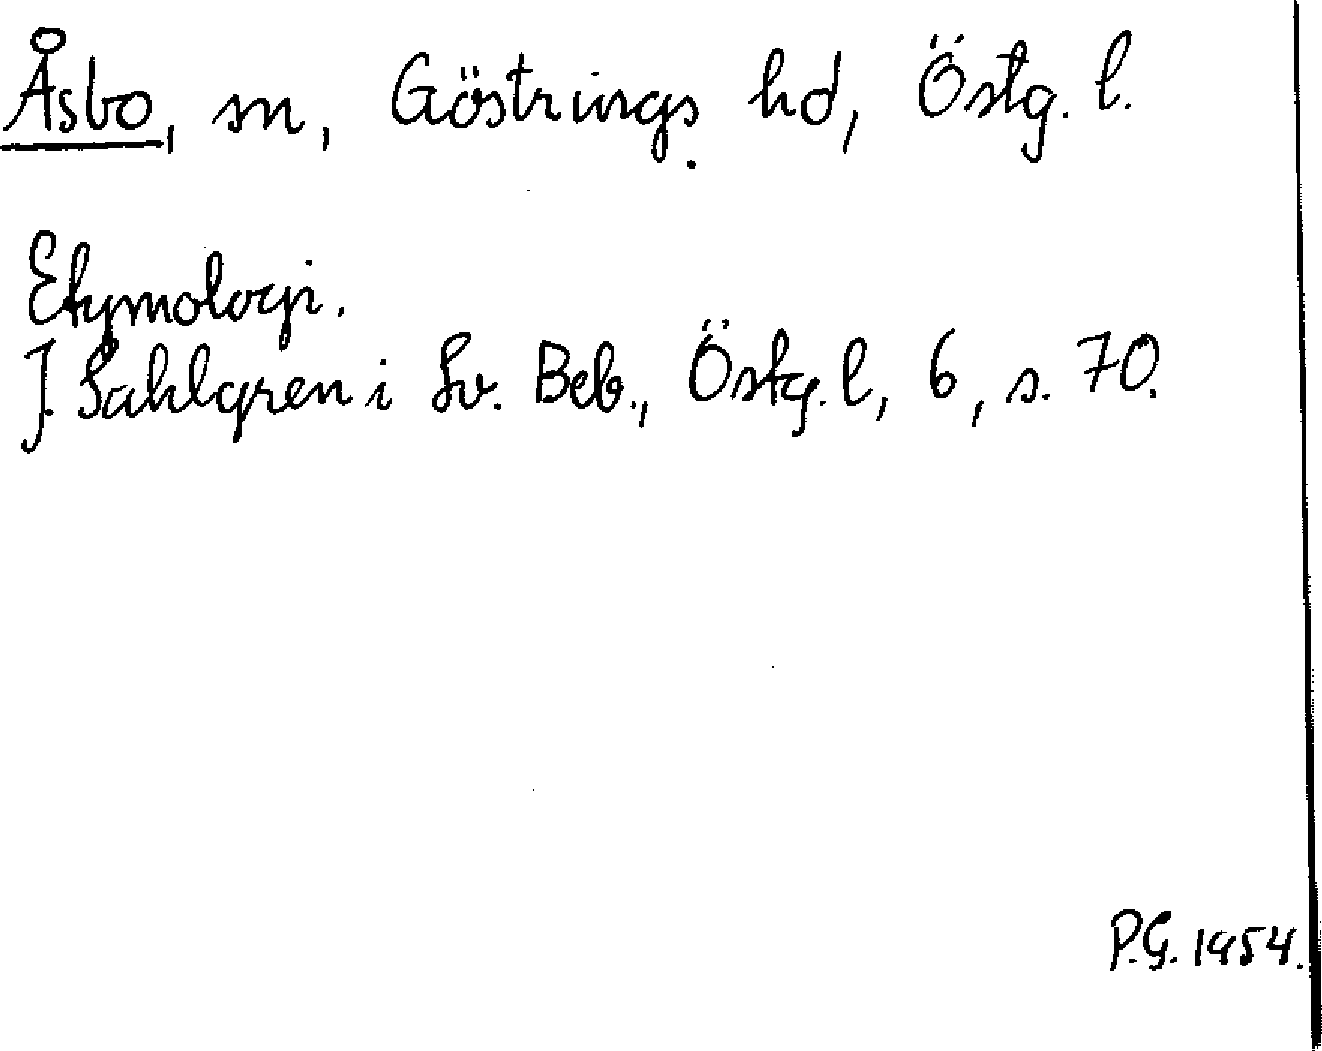 Åsbo, sn, Göstrings hd, Östg. l.
Etymologi.
J. Sahlgren i Sv. Beb., Östg. l, 6, s. 70.
P.G. 1954.